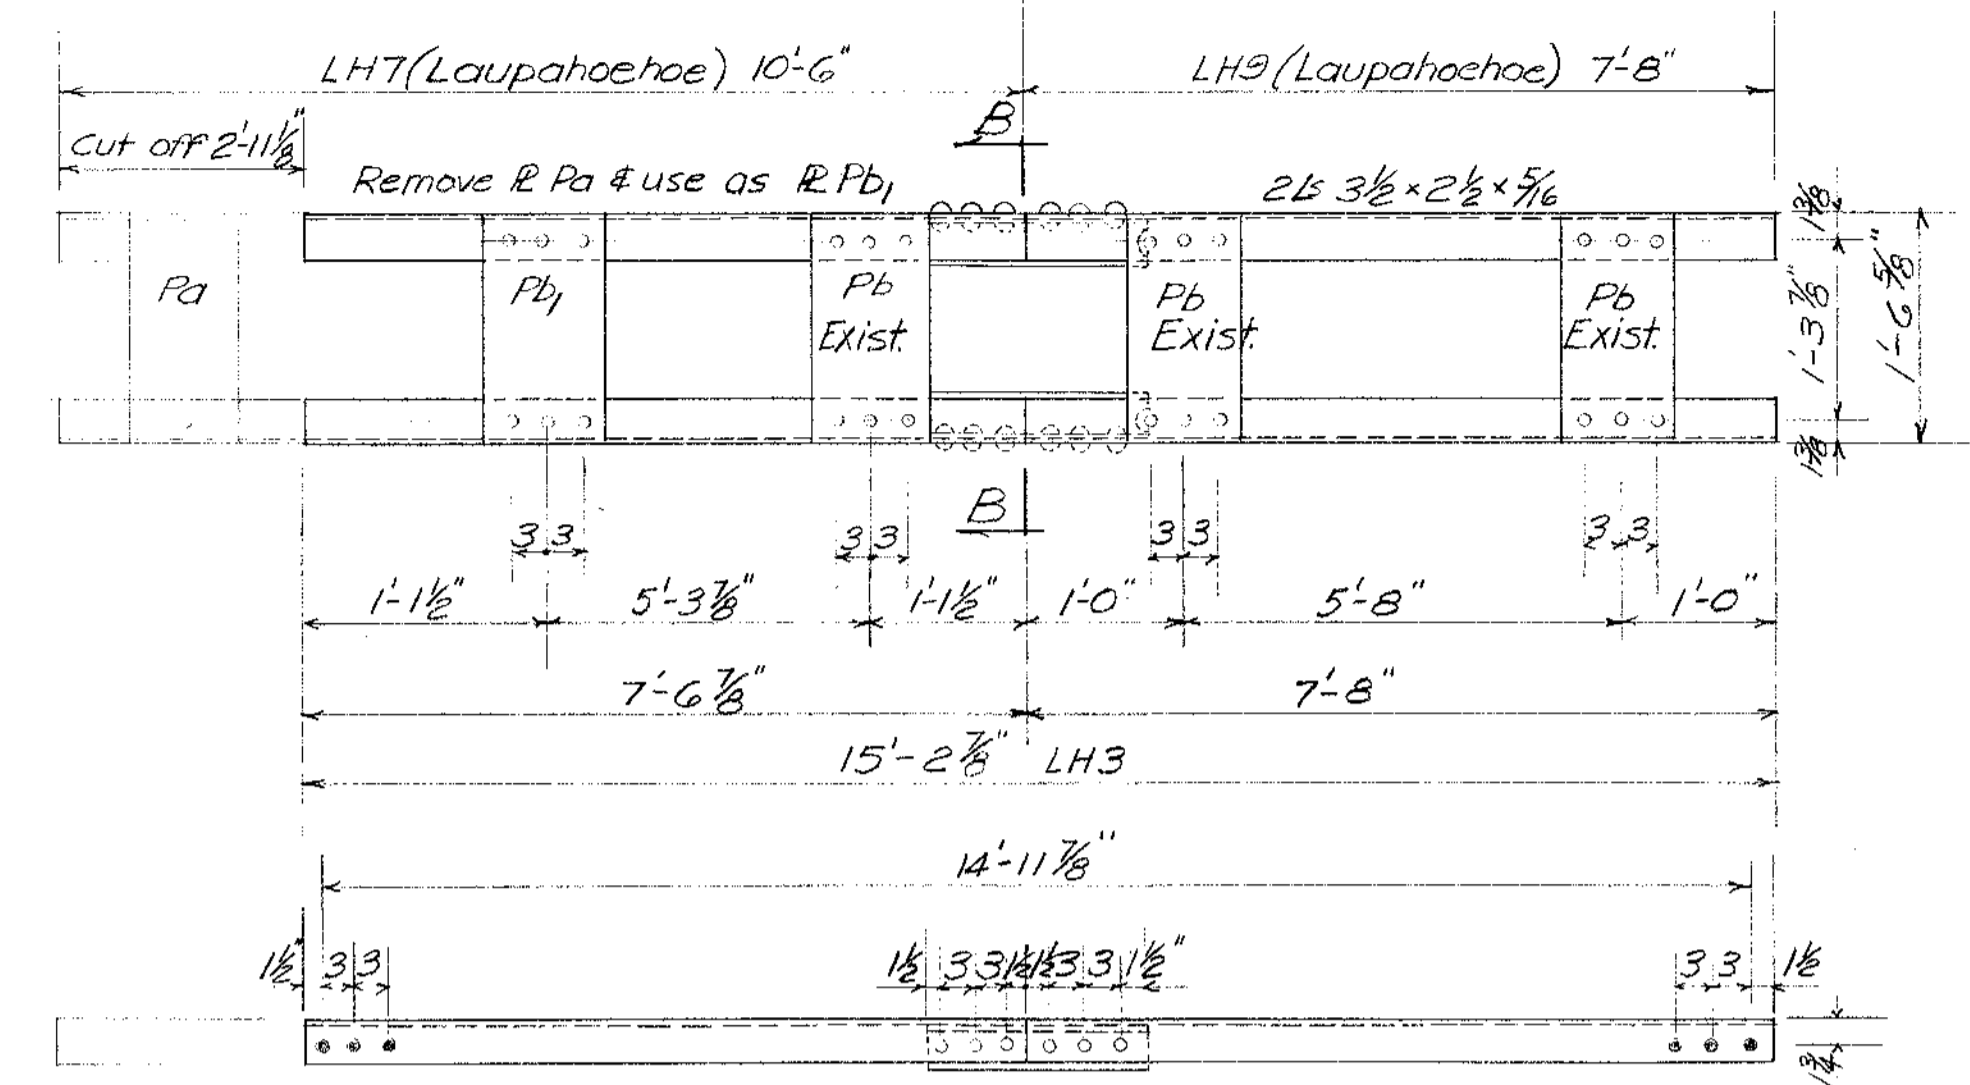 LH7(Laupahoehoe) 10'-6" LH9(Laupahoehoe) 7'-8"
Cut off 2'-11 1/8"
B
Remove ℞ Pa & use as ℞ Pb1 2Ls 3 1/2 × 2 1/2 × 5/16
1 3/8
Pa Pb1 Pb Exist. Pb Exist. Pb Exist.
1'-3 7/8" 1'-6 5/8"
1 3/8
B
3 3 3 3 3 3 3 3
1'-1 1/2" 5'-3 7/8" 1'-1 1/2" 1'-0" 5'-8" 1'-0"
7'-6 7/8" 7'-8"
15'-2 7/8" LH3
14'-11 7/8"
1 1/2" 3 3 1 1/2 3 3 1 1/2 1 1/2 3 3 1 1/2" 3 3 1 1/2
1 3/4